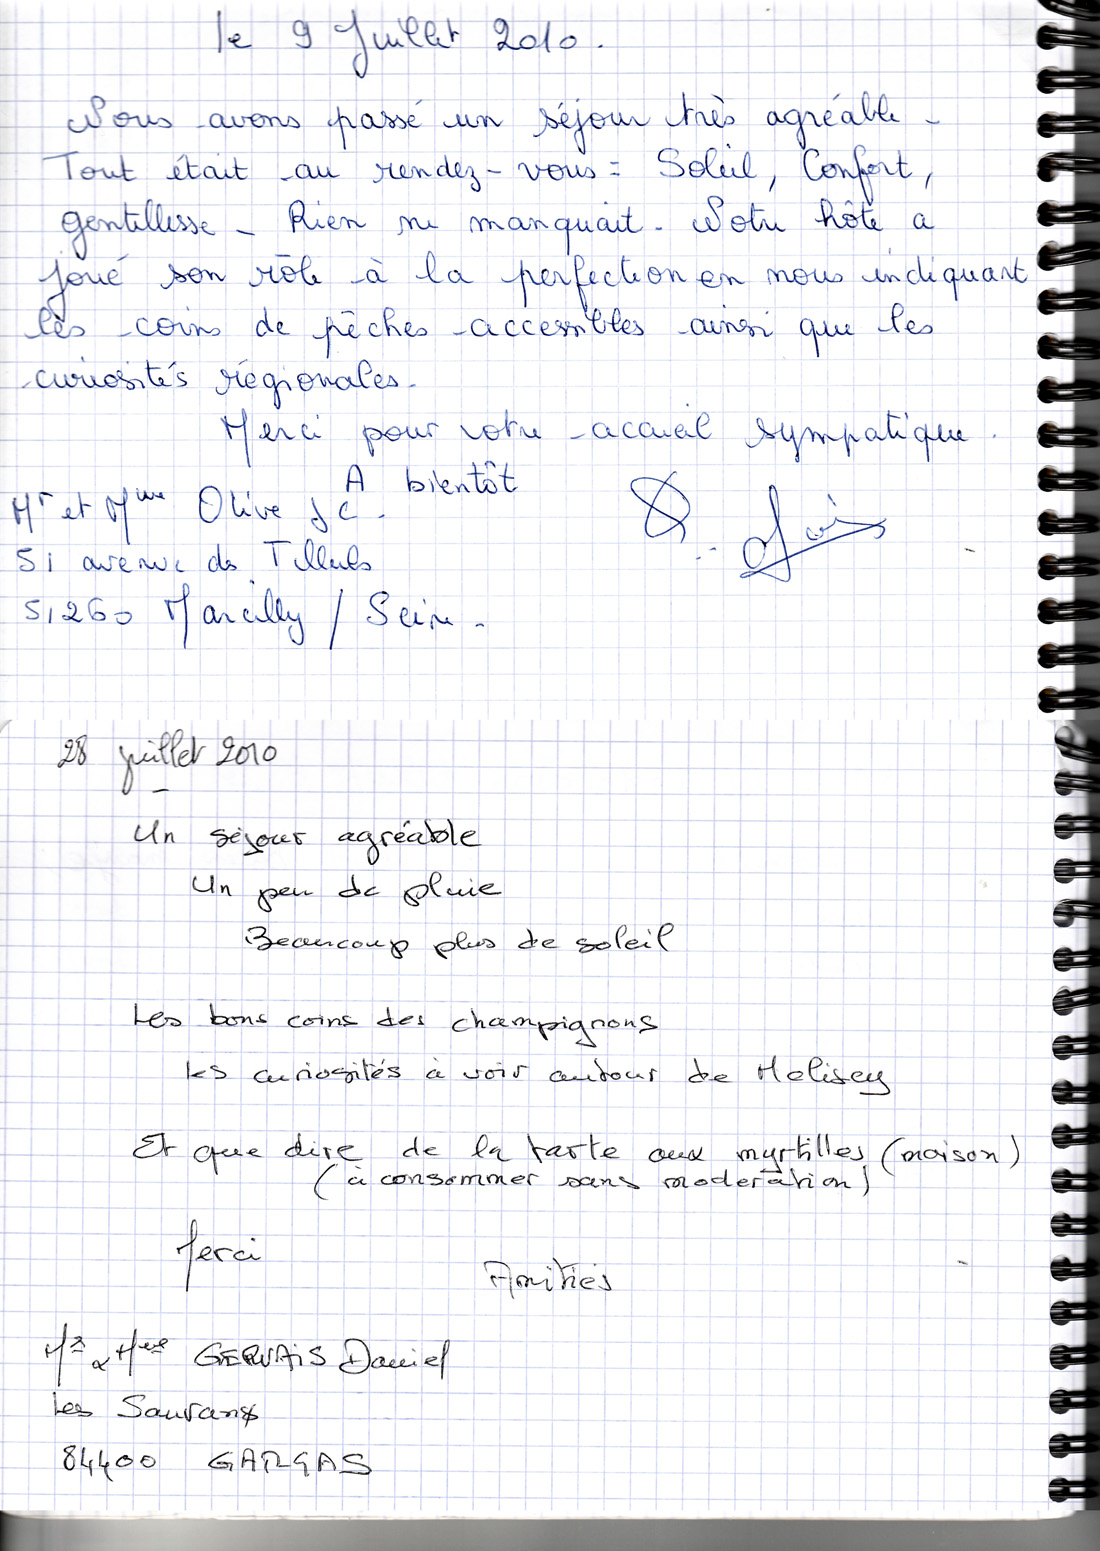 le 9 Juillet 2010.
Nous avons passé un séjour très agréable -
Tout était au rendez-vous : Soleil, Confort,
gentillesse - Rien ne manquait. Notre hôte a
joué son rôle à la perfection en nous indiquant
les coins de pêches accessibles ainsi que les
curiosités régionales.
Merci pour votre accueil sympatique.
A bientôt
Mr et Mme Olive J C.
51 avenue des Tilleuls
51260 Marcilly / Seine -
28 juillet 2010
Un séjour agréable
Un peu de pluie
Beaucoup plus de soleil
Les bons coins des champignons
les curiosités à voir autour de Melisey
Et que dire de la tarte aux myrtilles (maison)
(à consommer sans modération)
Merci
Amitiés
Mr & Mme GERVAIS Daniel
Les Sauvans
84400 GARGAS